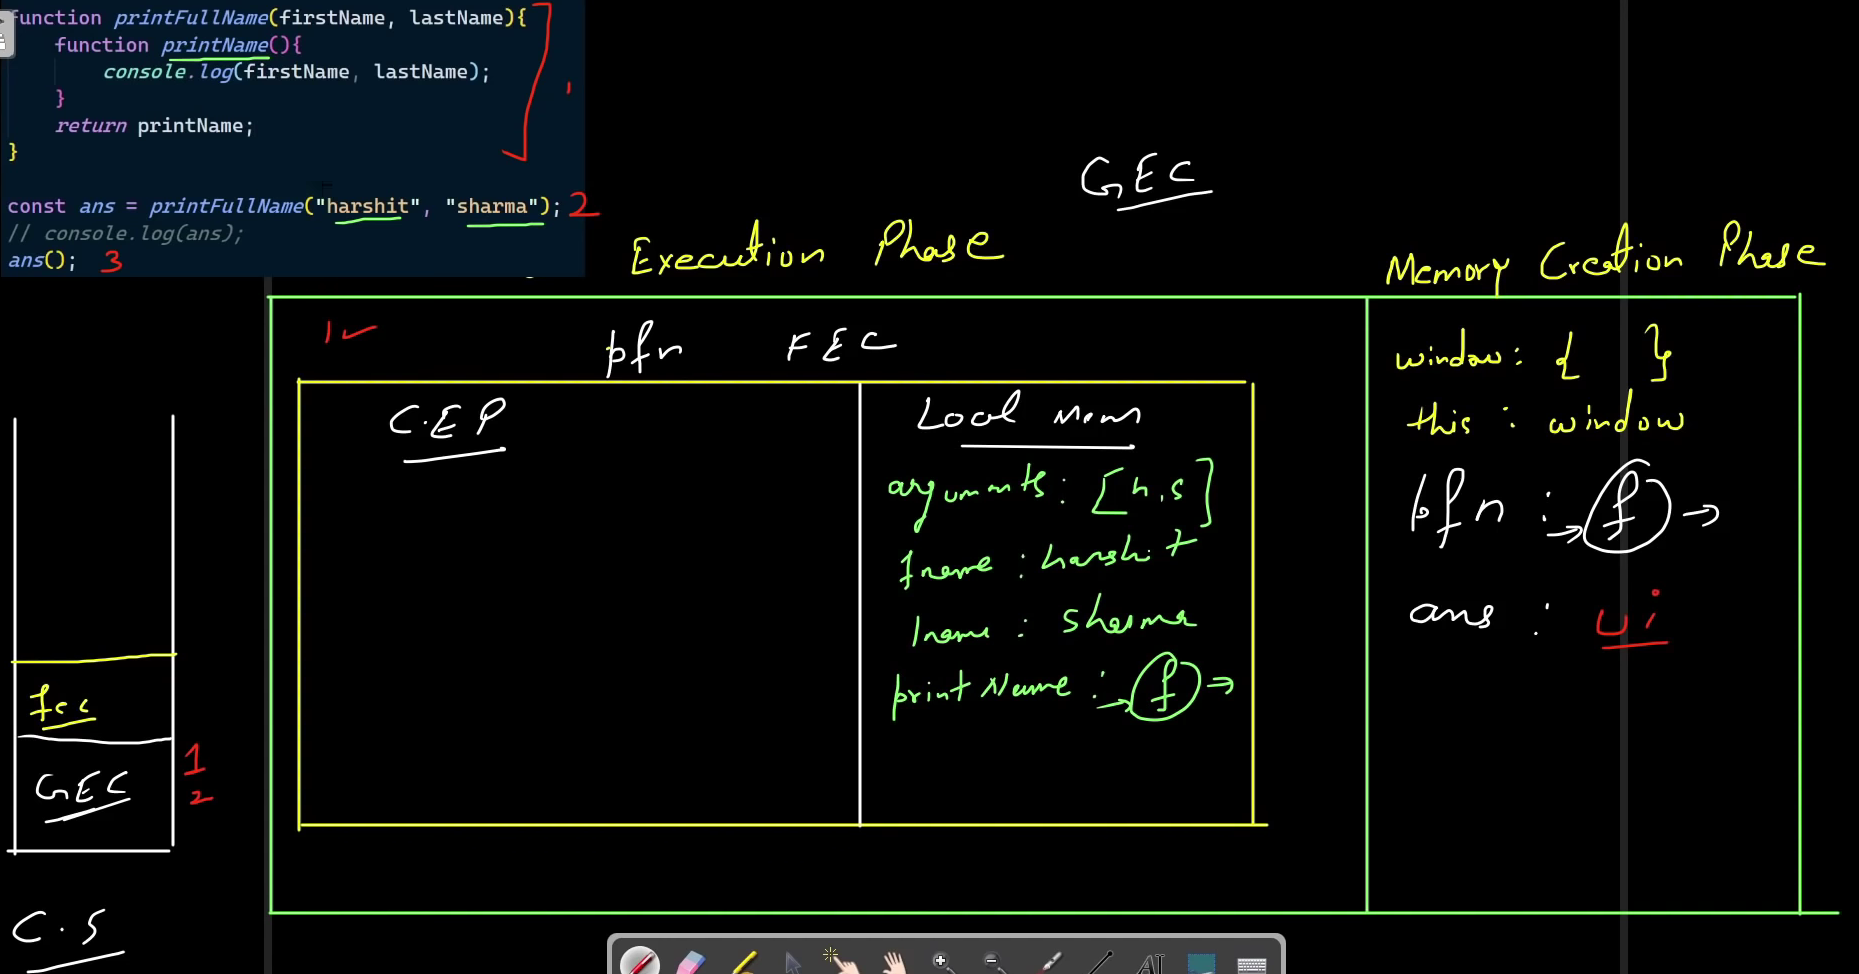 function printFullName(firstName, lastName){
function printName(){
console.log(firstName, lastName);
}
return printName;
}
const ans = printFullName("harshit", "sharma"); 2
// console.log(ans);
ans(); 3
GEC
Execution Phase
Memory Creation Phase
1
pfn FEC
C.E.P
Local Mem
arguments: [h,s]
fname : harshit
lname : sharma
printName : → f →
window: { }
this : window
pfn : → f →
ans : ui
fec
GEC
1
2
C.S
AI